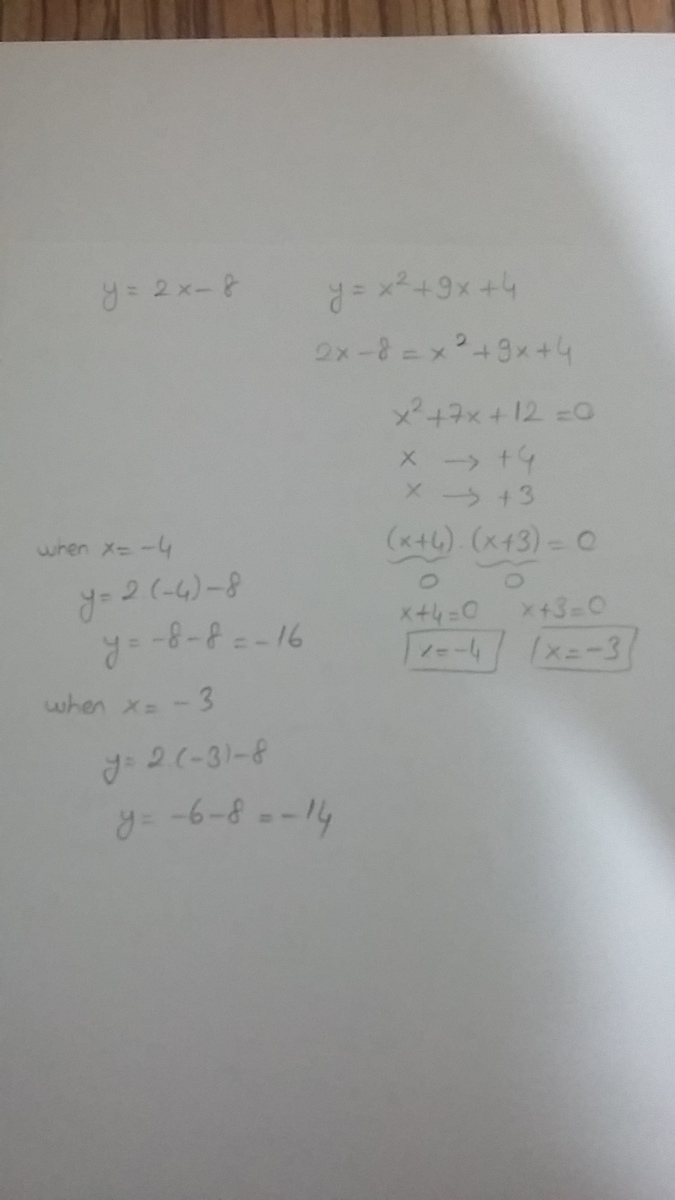 y = 2x - 8
y = x² + 9x + 4
2x - 8 = x² + 9x + 4
x² + 7x + 12 = 0
x → +4
x → +3
(x+4) . (x+3) = 0
0 0
x+4=0 x+3=0
x=-4 x=-3
when x = -4
y = 2.(-4) - 8
y = -8 - 8 = -16
when x = -3
y = 2.(-3) - 8
y = -6 - 8 = -14